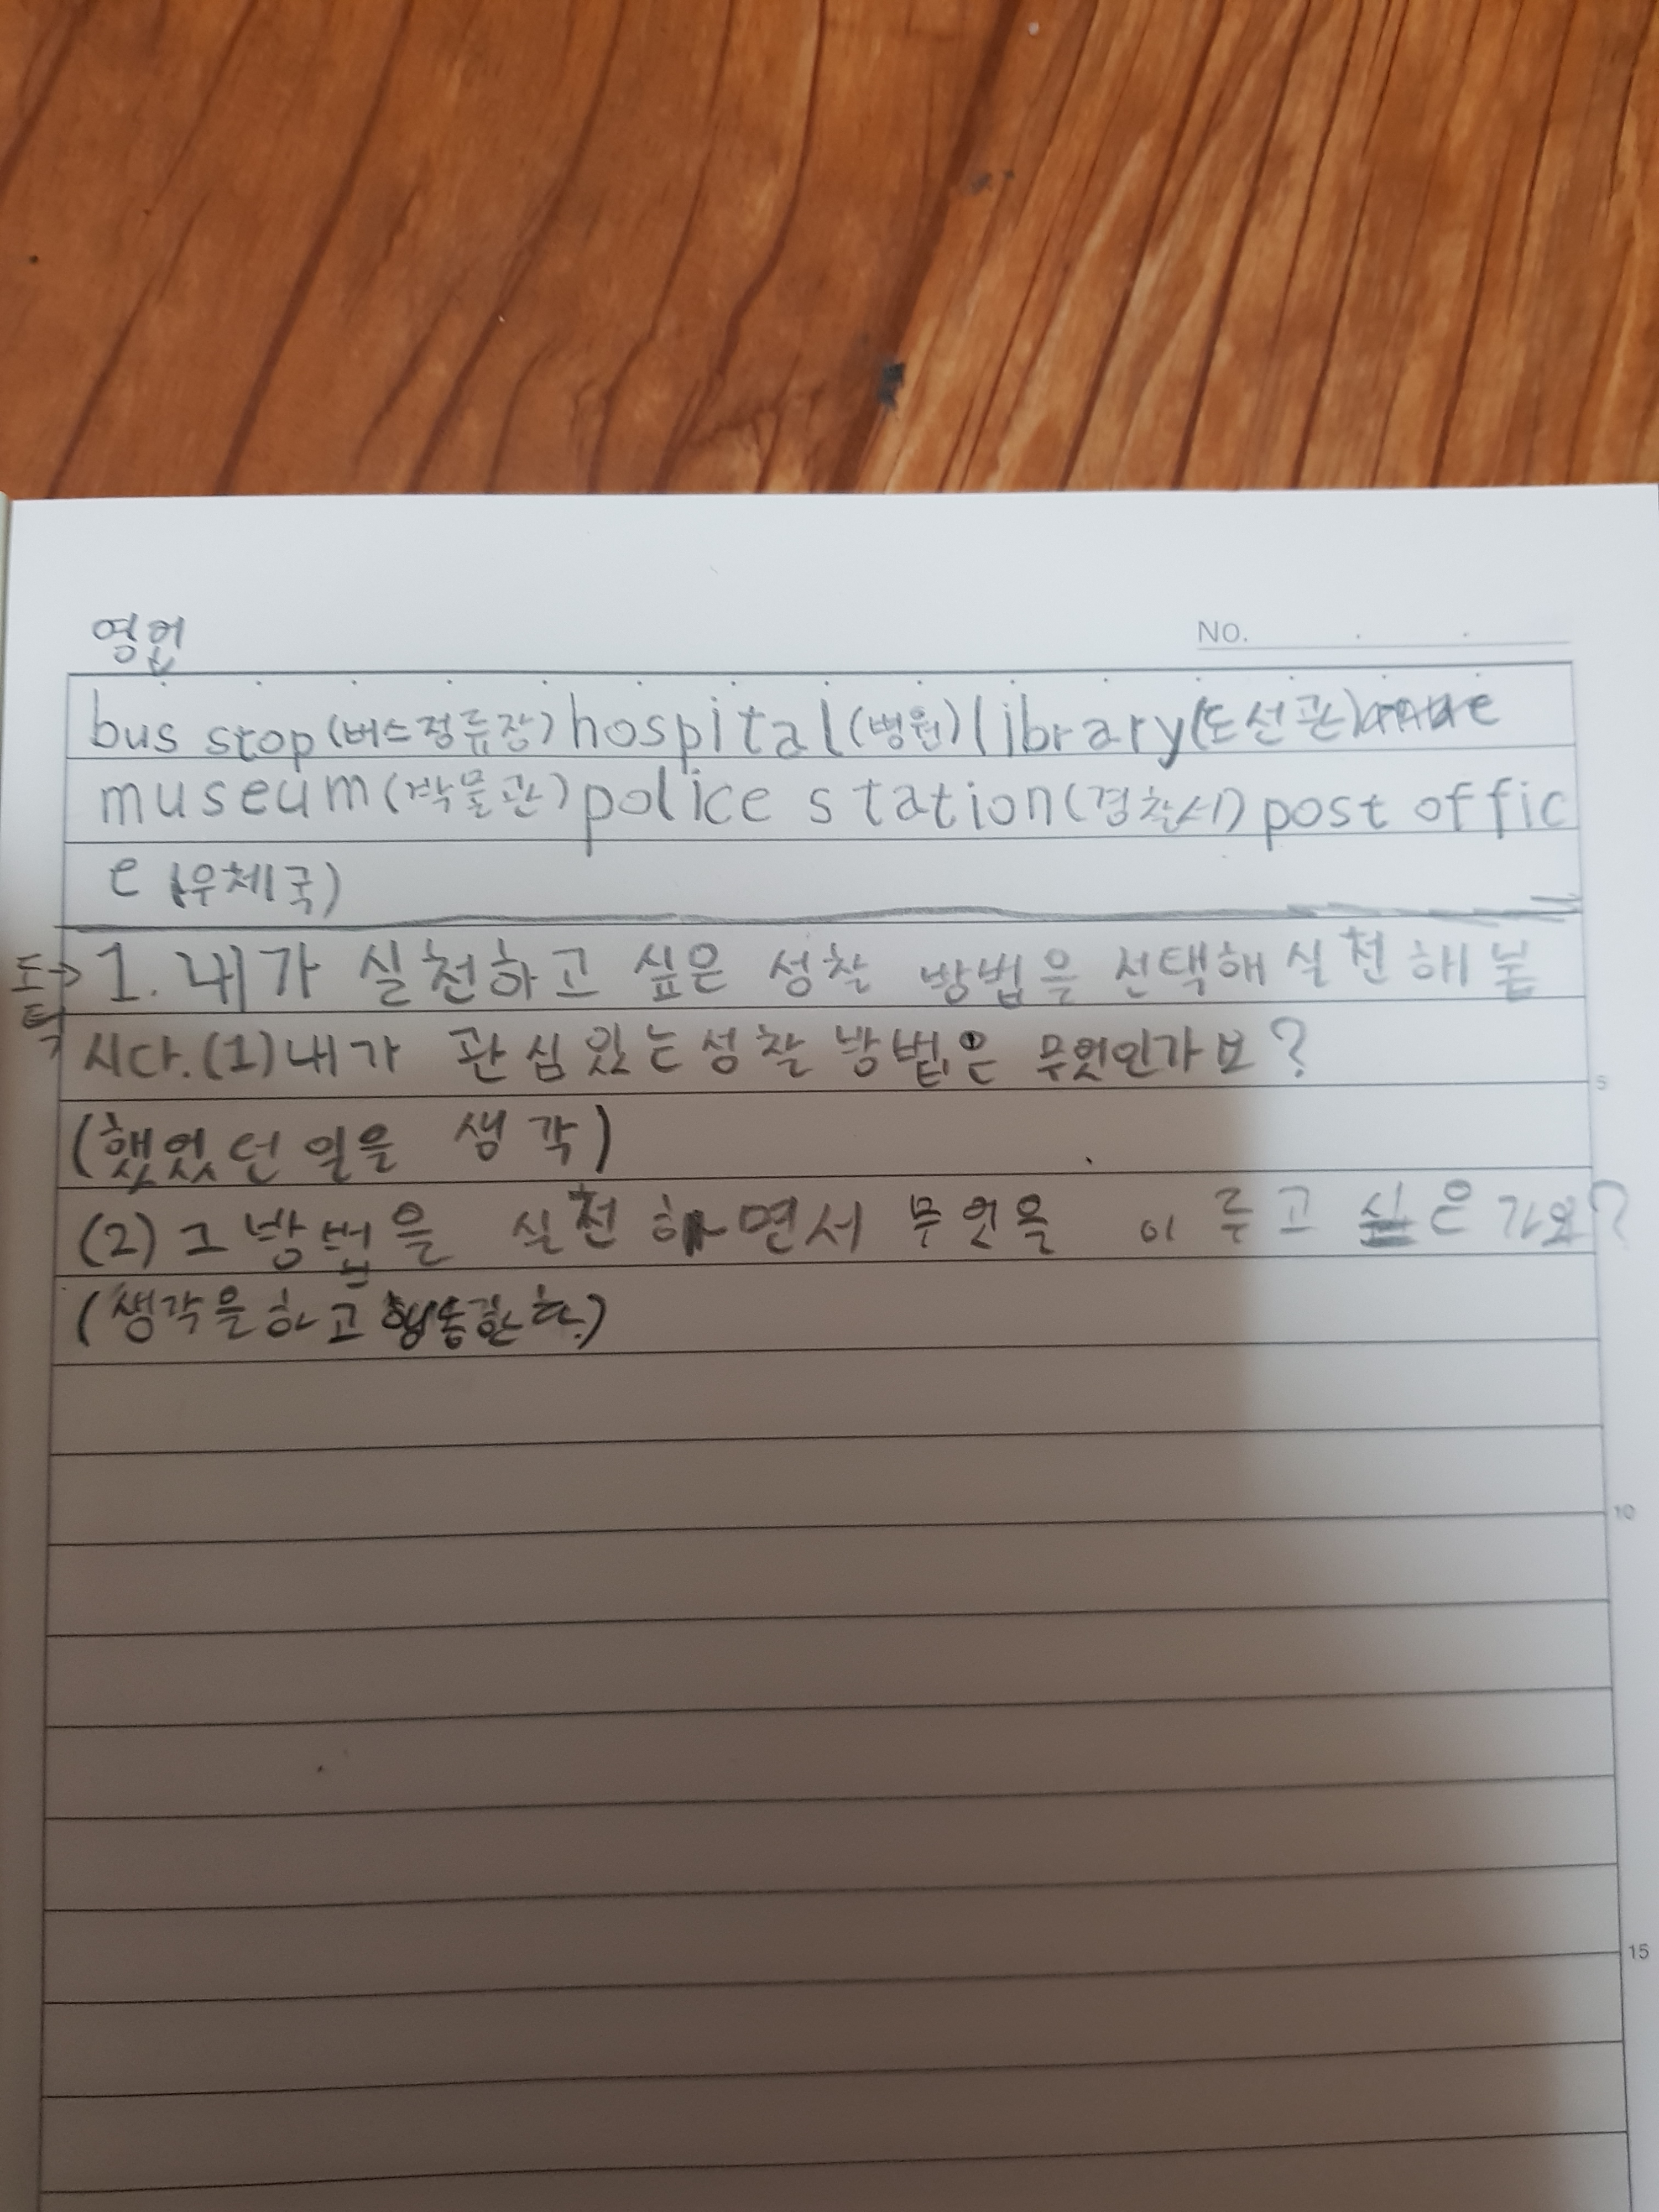 영어
NO.
bus stop(버스정류장)hospital(병원)library(도선관)
museum(박물관)police station(경찰서)post offic
e(우체국)
도덕→1. 내가 실천하고 싶은 성찰 방법을 선택해 실천해 봅
시다.(1)내가 관심있는성찰 방법은 무엇인가요?
5
(했었던 일을 생각)
(2)그방법을 실천하면서 무엇을 이루고 싶은가요?
(생각을하고 행동한다.)
10
15